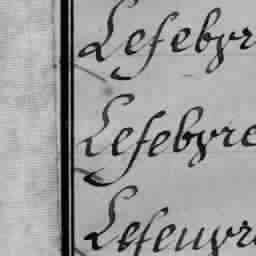 Lefebvr
Lefebvre
Lefeuvr